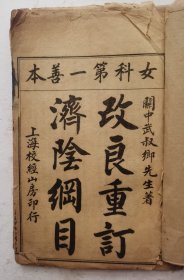 女科第一善本
關中武叔卿先生著
改良重訂
濟陰綱目
上海校經山房印行